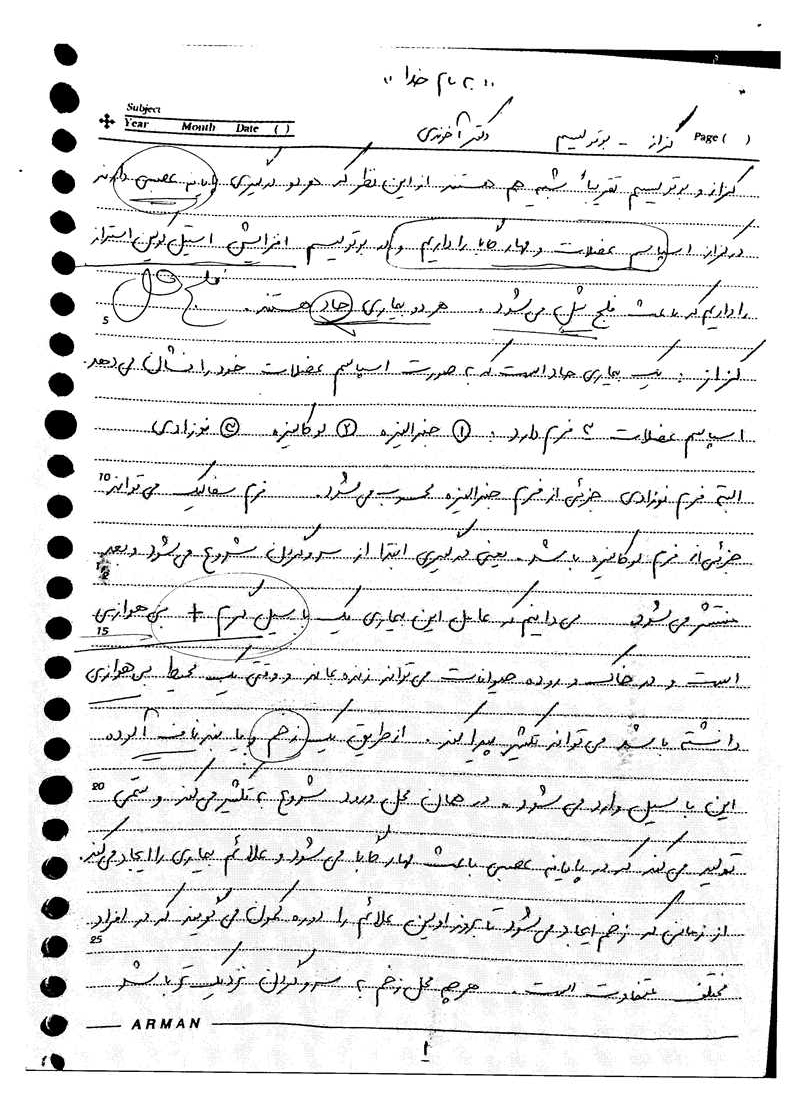 " به نام خدا "
Subject
Year Month Date ( )
گزاز - بوتولیسم دکتر آخوندی Page ( )
کزاز و بوتولیسم تقریباً شبیه هم هستند از این نظر که هر دو درگیری پایانه عصبی دارند
در کزاز اسپاسم عضلات و مهار گابا را داریم و در بوتولیسم افزایش استیل کولین استراز
را داریم که باعث فلج شل می‌شود. هر دو بیماری حاد هستند. فلج شل
5
کزاز: یک بیماری حاد است که به صورت اسپاسم عضلات خود را نشان می‌دهد.
اسپاسم عضلات ۳ فرم دارد: ① جنرالیزه ② لوکالیزه ③ نوزادی
10
البته فرم نوزادی جزئی از فرم جنرالیزه محسوب می‌شود. فرم سفالیک می‌تواند
جزئی از فرم لوکالیزه باشد. یعنی درگیری ابتدا از سر و گردن شروع می‌شود و بعد
منتشر می‌شود می‌دانیم که عامل این بیماری یک باسیل گرم + بی‌هوازی
15
است و در خاک و روده حیوانات می‌تواند زنده بماند و وقتی یک محیط بی‌هوازی
داشته باشد می‌تواند تکثیر پیدا کند. از طریق یک زخم و یا بند ناف آلوده
این باسیل وارد می‌شود. در همان محل ورود شروع به تکثیر می‌کند. و سمی
20
تولید می‌کند که در پایانه عصبی باعث مهار گابا می‌شود و علائم بیماری را ایجاد می‌کند.
از زمانی که زخم ایجاد می‌شود تا بروز اولین علائم را دوره کمون می‌گویند که در افراد
25
مختلف متفاوت است. هر چه محل زخم به سر و گردن نزدیک تر باشد
ARMAN
1